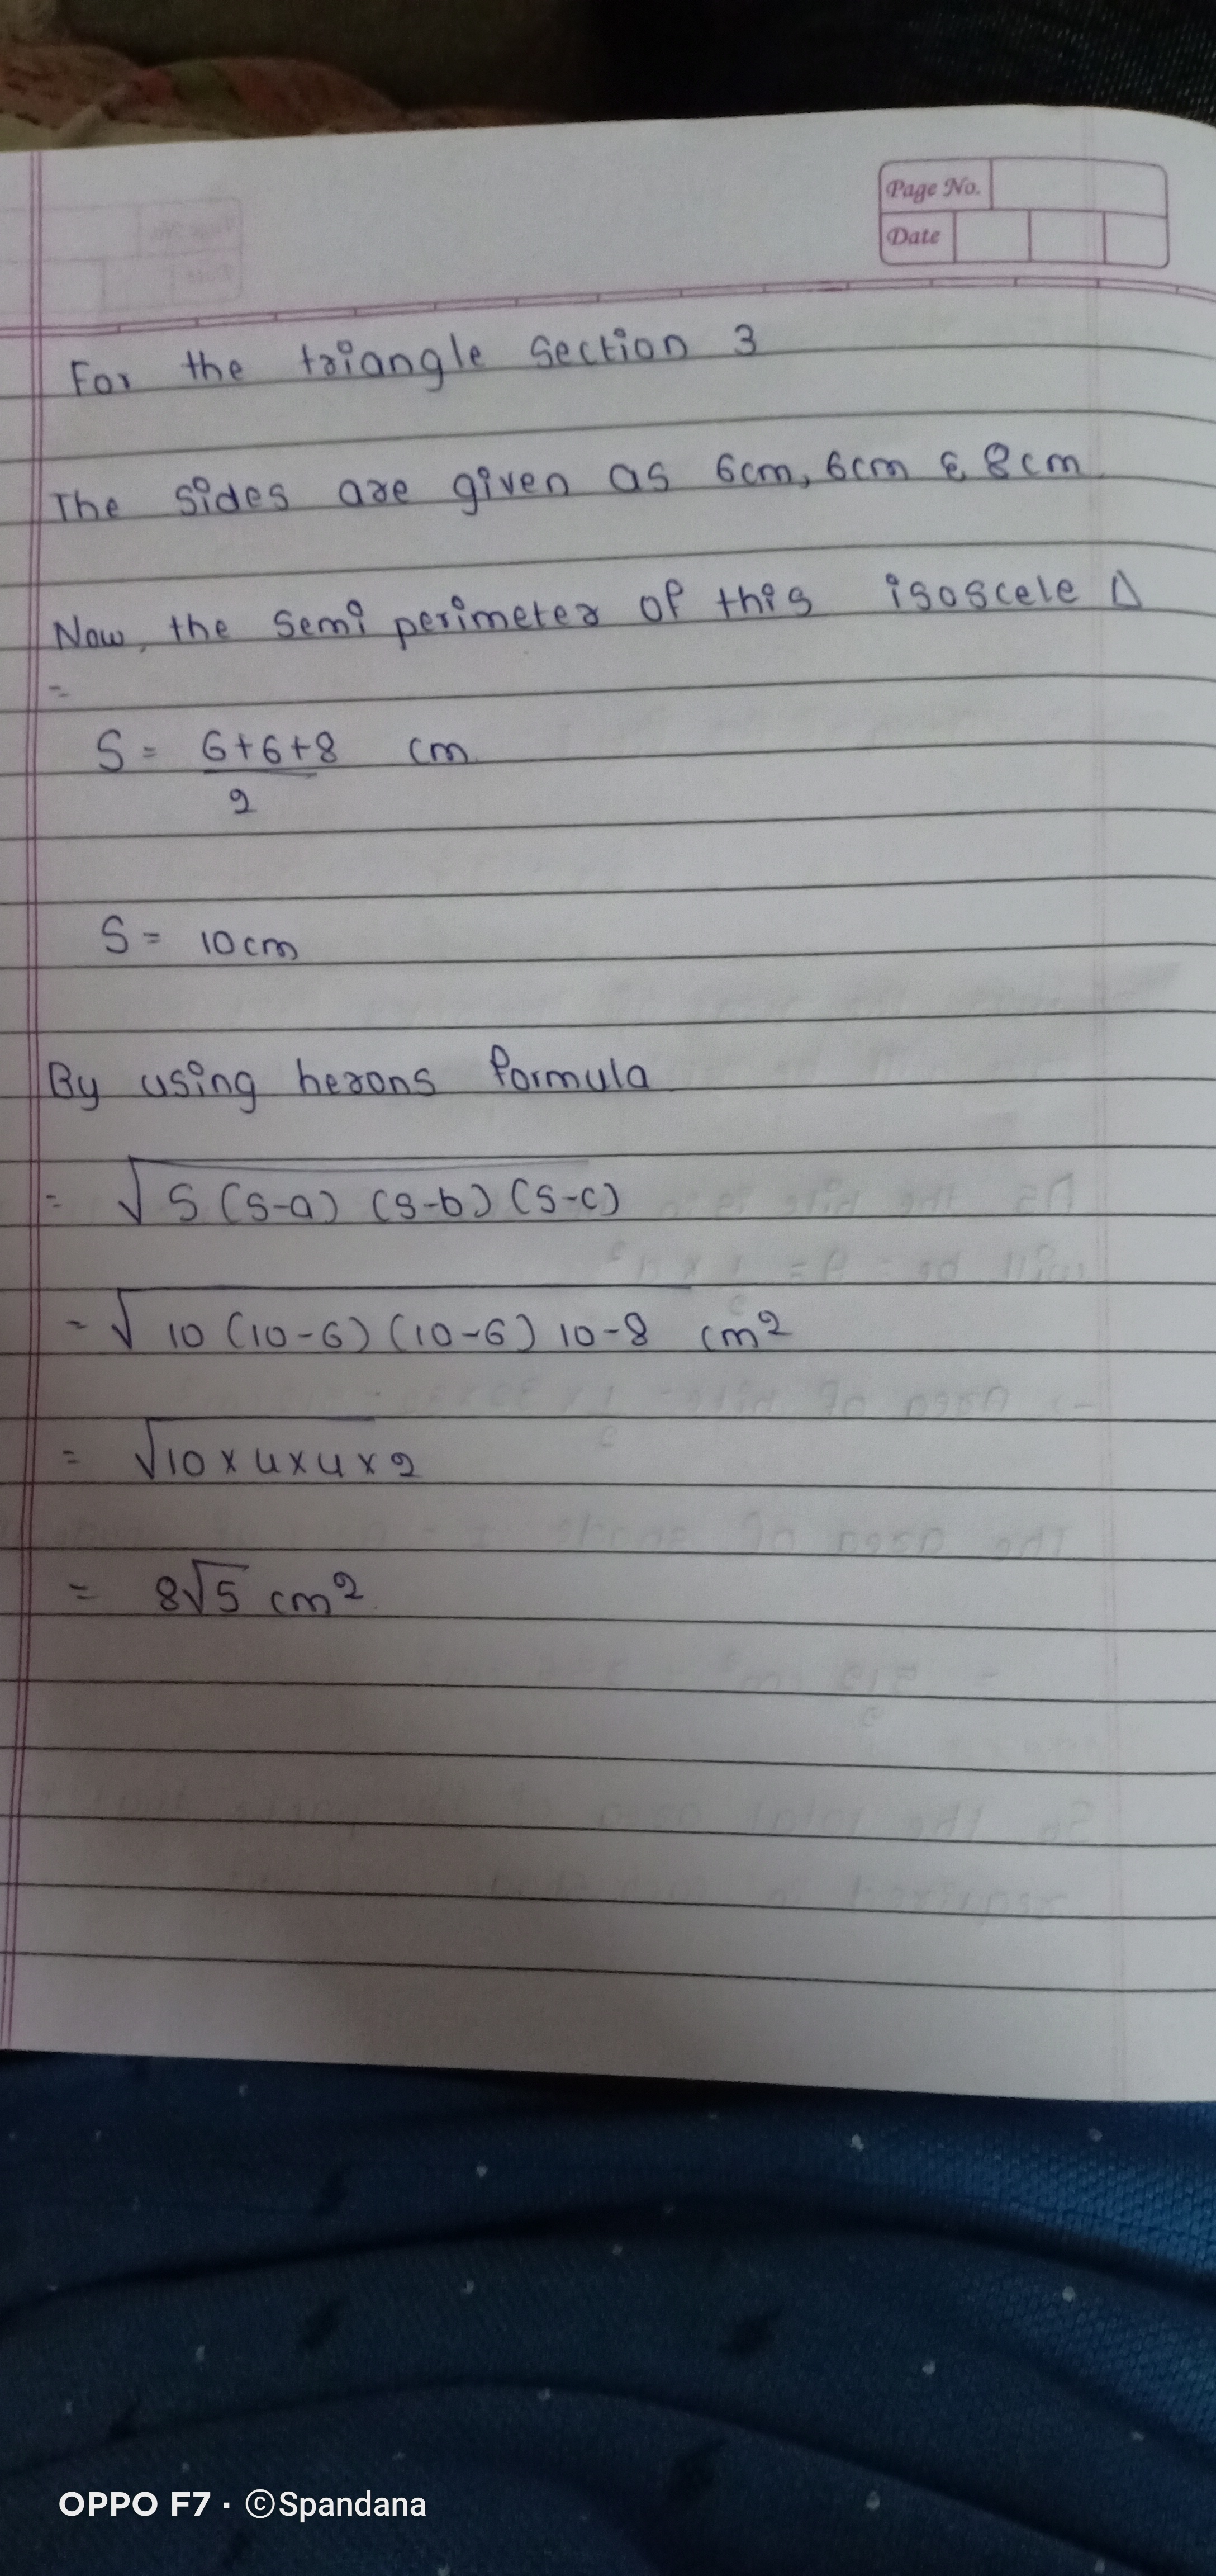 Page No.
Date
For the triangle section 3
The sides are given as 6cm, 6cm & 8cm
Now, the semi perimeter of this isoscele Δ
=
S = 6+6+8 cm
2
S = 10cm
By using herons formula
= √S (S-a) (S-b) (S-c)
= √10 (10-6) (10-6) 10-8 cm²
= √10 x 4 x 4 x 2
= 8√5 cm²
OPPO F7 · ©Spandana